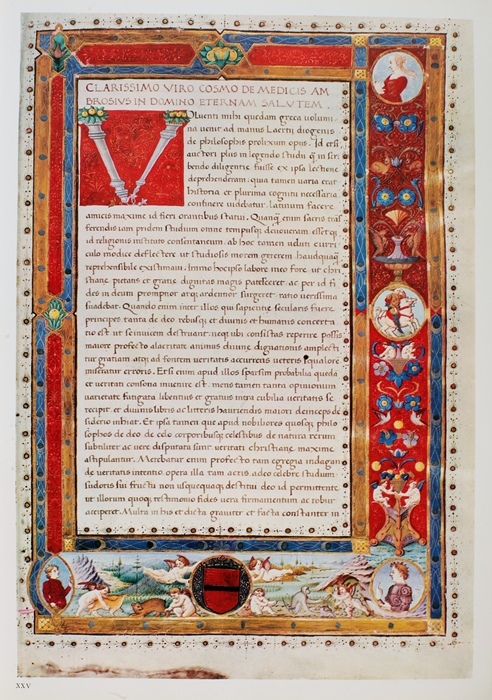 CLARISSIMO VIRO COSMO DE MEDICIS AM
BROSIUS IN DOMINO ETERNAM SALUTEM
VOluenti mihi quedam greca uolumi
na uenit ad manus Laertii diogenis
de philosophis prolixum opus. Id etsi
auctori plus in legendo studii q̃ in scri
bendo diligentie fuisse ex ipsa lectione
deprehenderam: quia tamen uaria erat
historia et plurima cognitu necessaria
continere uidebatur. Latinum facere
amicis maxime id fieri orantibus statui. Quanq̃ enim sacris tras
ferendis iam pridem studium omne tempusq; deuoueram esset q;
id religionis instituto consentaneum. ab hoc tamen uoluti curri
culo modice deflectere ut studiosis morem gererem haudquaq̃
reprehensibile existimaui. Immo hoc ipsis labore meo fore. ut chri
stiane pietatis et gratie dignitas magis pateſceret. ac per id fi
des in deum promptior atq; ardentior surgeret: ratio uerissima
suadebat. Quando enim inter illos qui sapientie secularis fuere
principes. tanta de deo. rebusq; et diuinis et humanis concerta
tio est ut se inuicem destruant: neq; ubi consistas reperire possis.
maiore profecto alacritate animus diuine dignationis amplecti
tur gratiam atq; ad fontem ueritatis accurrens ueteris squalore
miseratur erroris. Etsi enim apud illos sparsim probabilia quedā
et ueritati consona inuenire est. mens tamen tanta opinionum
uarietate fatigata libentius et gratius intra cubilia ueritatis se
recipit et diuinis libris ac litteris hauriendis maiori deinceps de
siderio inhiat. Et ipsa tamen que apud nobiliores quosq; philo
sophos de deo. de celo corporibusq; celestibus de natura rerum
subtiliter ac uere disputata sunt. ueritati christiane maxime
astipulantur. Merebatur enim profecto tam egregia indagan
de ueritatis intentio opera illa tam acris. adeo celebre studium
sudoris sui fructu non usquequaq; destitui deo id permittente
ut illorum quoq; testimonio fidei uera firmamentum ac robur
acciperet. Multa in his et dicta grauiter et facta constanter in
XXV